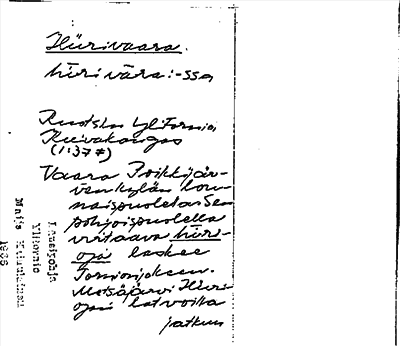 Hiirivaara.
hīri vāra: -ssa
Ruotsin Ylitornio,
Kuivakangas
(1:37 #)
Vaara Poikkijär-
ven kylän lou-
naispuolella. Sen
pohjoispuolella
virtaava hīri-
oja laskee
Tornionjokeen.
Metsäjärvi Hiiri-
ojan latvoilla
jatkuu
Länsipohja
Ylitornio
Maija
1935